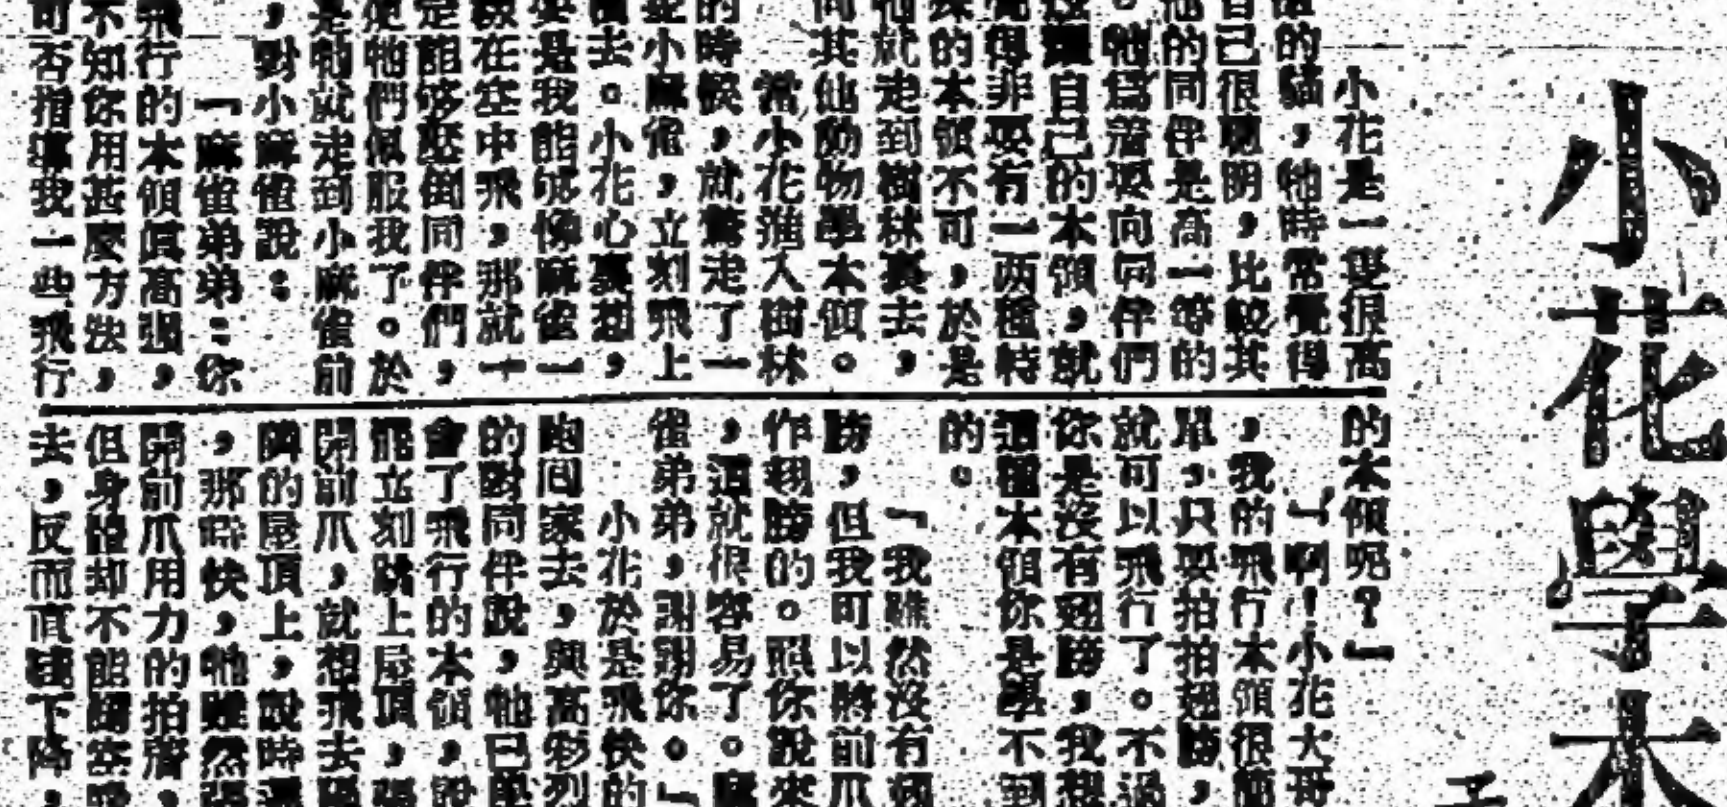 小花學本
小花是一隻很高
的貓，牠時常覺得
自己很聰明，比較其
他的同伴是高一等的
。牠爲着要向同伴們
自己的本領，就
覺得非要有一两種特
殊的本領不可，於是
他就走到樹林裏去，
向其他動物學本領。
當小花進入樹林
的時候，就驚走了一
小麻雀，立刻飛上
去。小花心裏想，
要是我能够像麻雀一
樣在空中飛，那就一
定能够壓倒同伴們，
使牠們佩服我了。於
是牠就走到小麻雀前
，對小麻雀說：
「麻雀弟弟：你
飛行的本領眞高強，
不知你用甚麼方法，
可否指導我一些飛行
的本領呢？」
「啊！小花大哥
，我的飛行本領很簡
單，只要拍拍翅膀，
就可以飛行了。不過
你是沒有翅膀，我想
這種本領你是學不到
的。
「我雖然沒有翅
膀，但我可以將前爪
作翅膀的。照你說來
，這就很容易了。麻
雀弟弟，謝謝你。」
小花於是飛快的
跑囘家去，興高彩列
的對同伴說，牠已學
會了飛行的本領，說
能立刻跳上屋頂，張
開前爪，就想飛去隔
隣的屋頂上，說時遲
，那時快，牠雖然張
開前爪用力的拍着，
但身體却不能騰空
去，反而直綫下降，